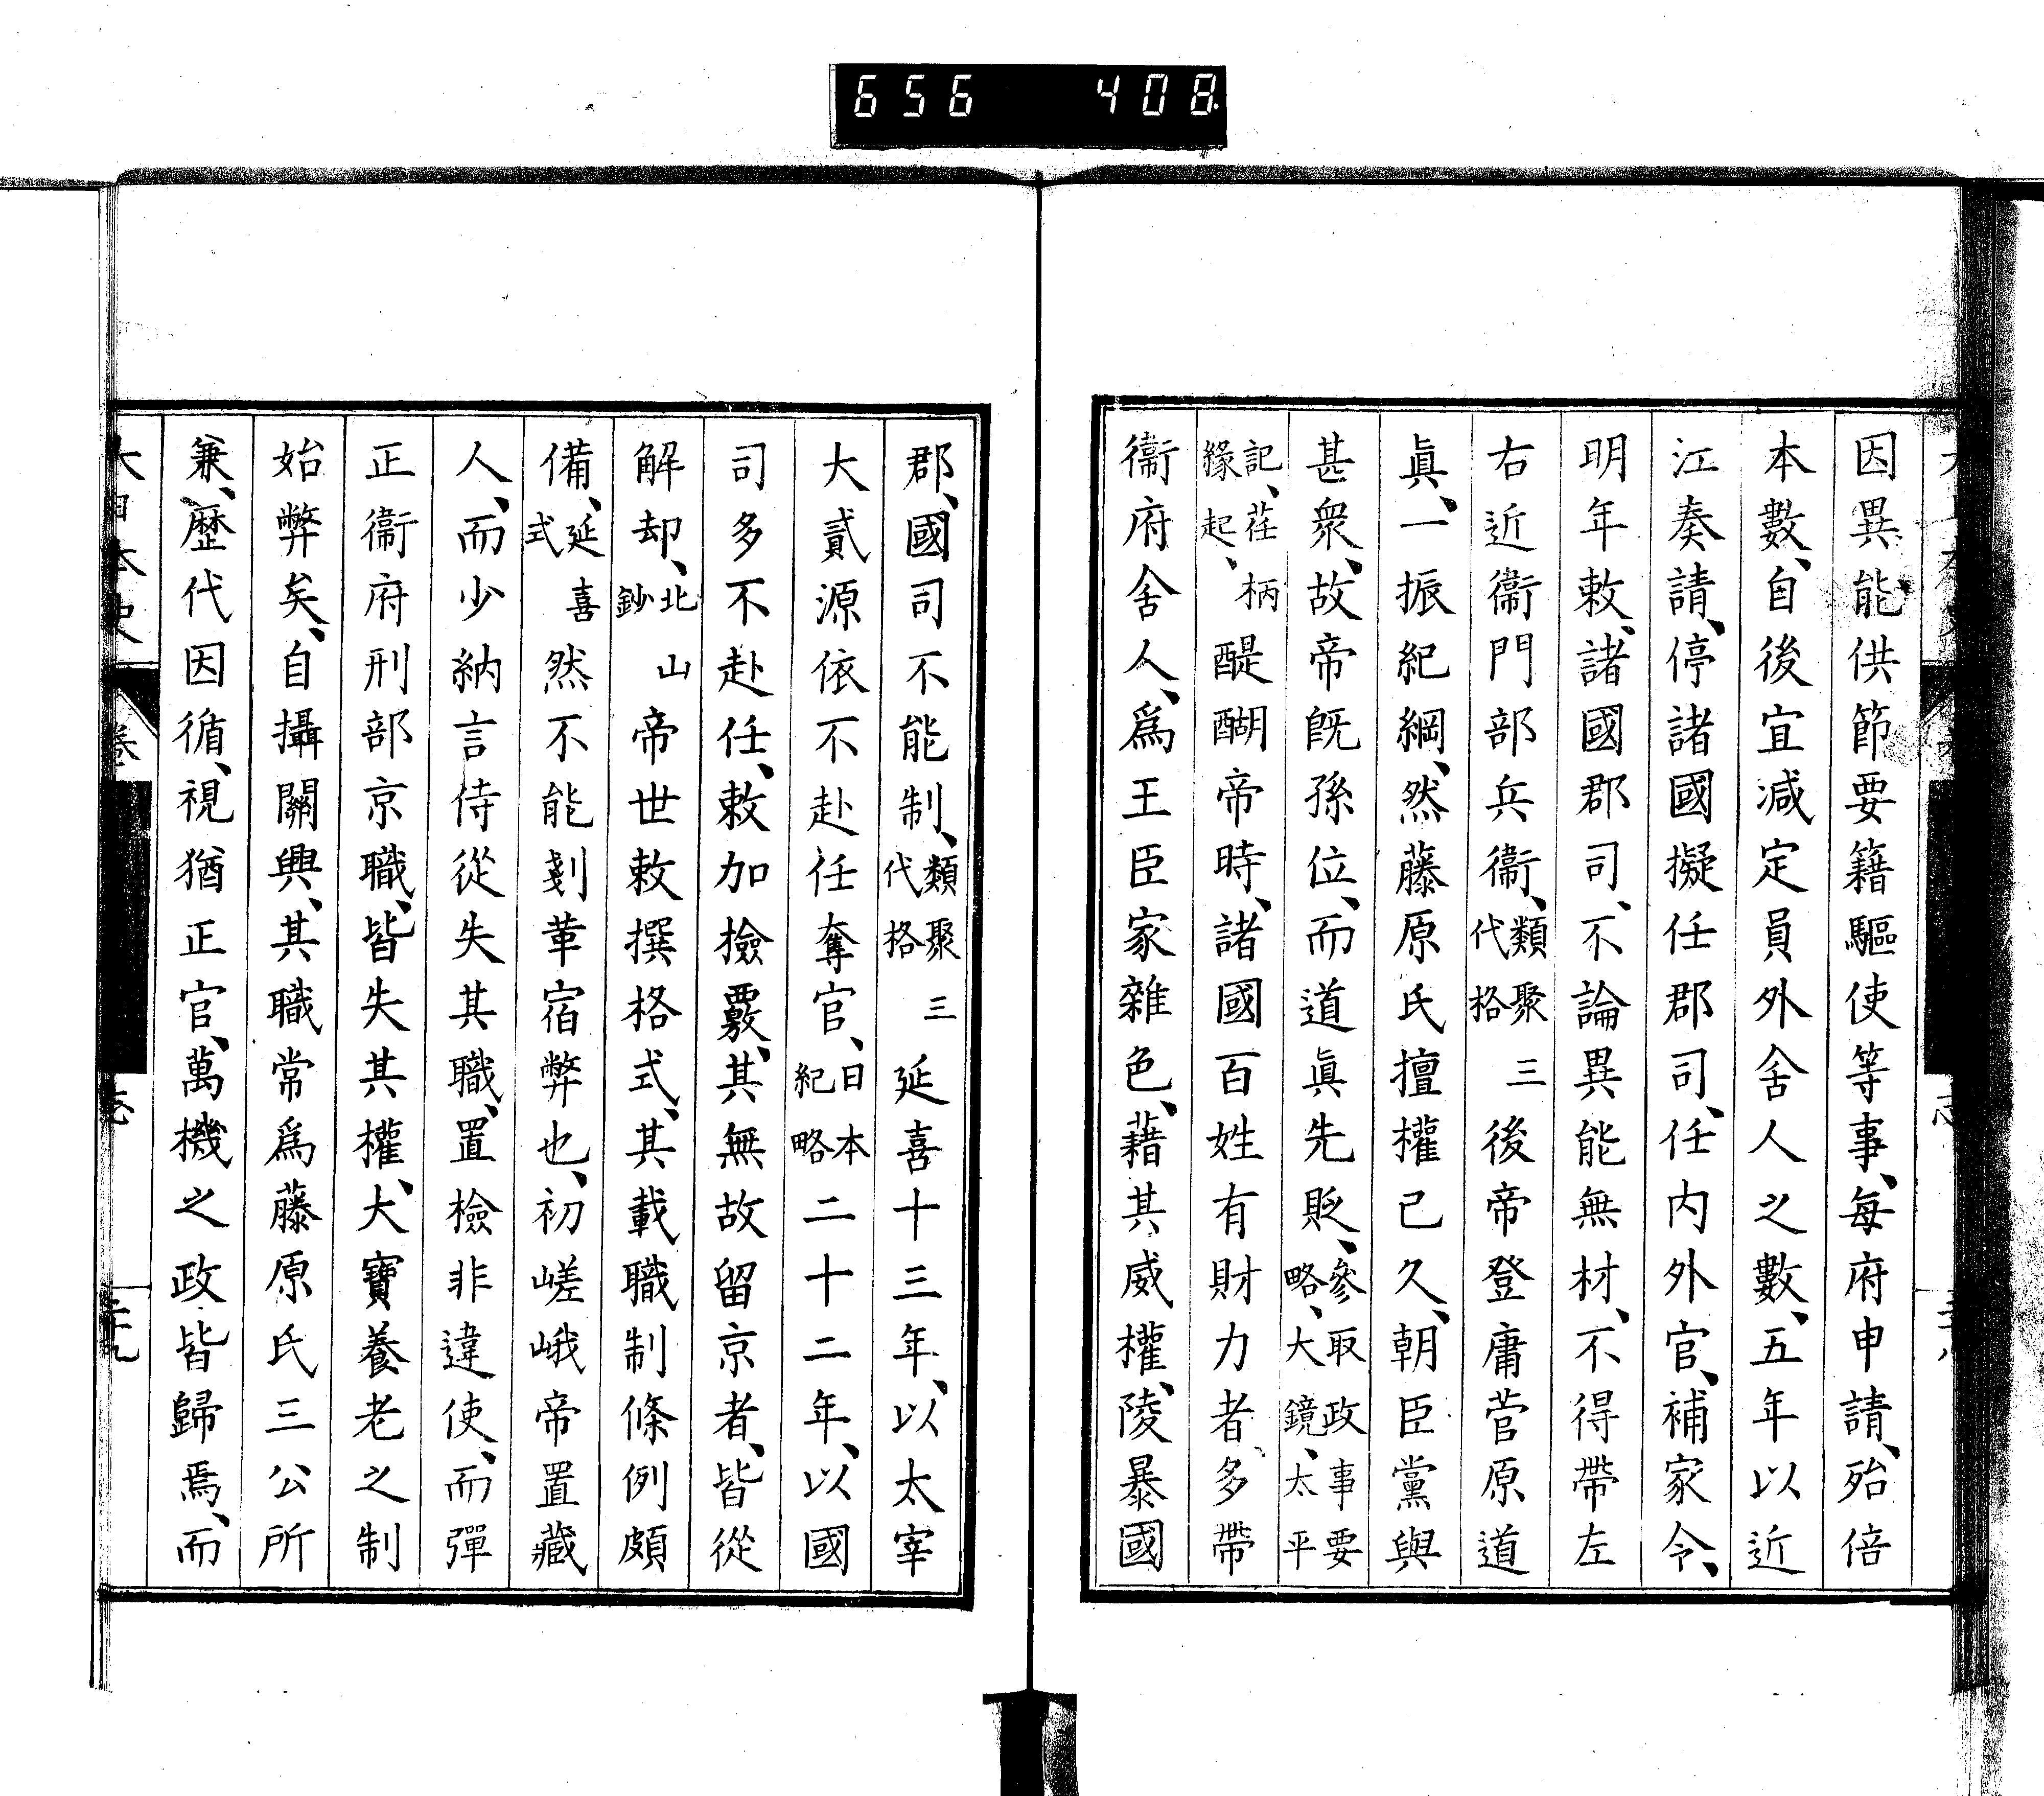 656 408
因異能、供節要籍驅使等事、每府申請、殆倍
本數、自後宜減定員外舍人之數、五年以近
江奏請、停諸國擬任郡司、任內外官、補家令、
明年敕、諸國郡司、不論異能無材、不得帶左
右近衞門部兵衞、類聚三代格後帝登庸菅原道
眞、一振紀綱、然藤原氏擅權已久、朝臣黨與
甚衆、故帝旣孫位、而道眞先貶、參取政事要略、大鏡、太平
記、荏柄緣起、醍醐帝時、諸國百姓有財力者、多帶
衞府舍人、爲王臣家雜色、藉其威權、陵暴國
郡、國司不能制、類聚三代格延喜十三年、以太宰
大貳源依不赴任奪官、日本紀略二十二年、以國
司多不赴任、敕加撿覈、其無故留京者、皆從
解却、北山鈔帝世敕撰格式、其載職制條例頗
備、延喜式然不能剗革宿弊也、初嵯峨帝置藏
人、而少納言侍從失其職、置檢非違使、而彈
正衞府刑部京職、皆失其權、大寶養老之制
始弊矣、自攝關興、其職常爲藤原氏三公所
兼、歷代因循、視猶正官、萬機之政皆歸焉、而
大日本史 卷 志 二十九